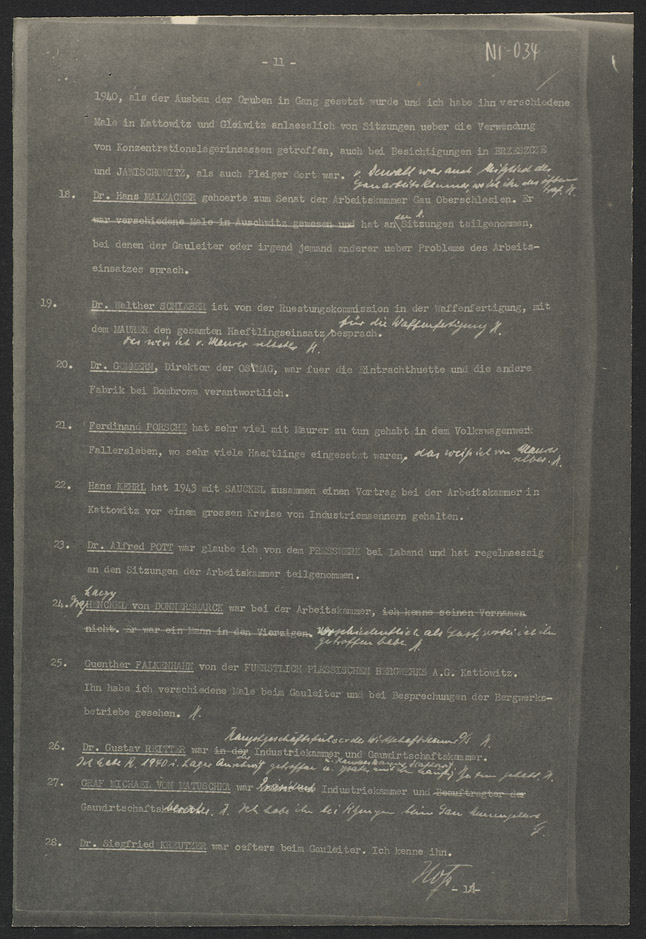 - 11 -
NI-034
1940, als der Ausbau der Gruben in Gang gesetzt wurde und ich habe ihn verschiedene
Male in Kattowitz und Gleiwitz anlaesslich von Sitzungen ueber die Verwendung
von Konzentrationslagerinsassen getroffen, auch bei Besichtigungen in BRZESZCZE
und JAWISCHOWITZ, als auch Pleiger dort war. v. Dewall war auch Mitglied der
Gauarbeitskammer, wo ich ihn des öfteren traf. H.
18. Dr. Hans MALZACHER gehoerte zum Senat der Arbeitskammer Gau Oberschlesien. Er
war verschiedene Male in Auschwitz gewesen und hat an den H. Sitzungen teilgenommen,
bei denen der Gauleiter oder irgend jemand anderer ueber Probleme des Arbeits-
einsatzes sprach.
19. Dr. Walther SCHIEBER ist von der Ruestungskommission in der Waffenfertigung, mit
dem MAURER den gesamten Haeftlingseinsatz für die Waffenfertigung H. besprach.
das weiss ich v. Maurer selbst H.
20. Dr. GOEDERN, Direktor der OSMAG, war fuer die Eintrachthuette und die andere
Fabrik bei Dombrowa verantwortlich.
21. Ferdinand PORSCHE hat sehr viel mit Maurer zu tun gehabt in dem Volkswagenwerk
Fallersleben, wo sehr viele Haeftlinge eingesetzt waren, das weiß ich von Maurer
selbst. H.
22. Hans KEHRL hat 1943 mit SAUCKEL zusammen einen Vortrag bei der Arbeitskammer in
Kattowitz vor einem grossen Kreise von Industriemaennern gehalten.
23. Dr. Alfred POTT war glaube ich von dem PRESSWERK bei Laband und hat regelmaessig
an den Sitzungen der Arbeitskammer teilgenommen.
24. Graf HENCKEL von DONNERSMARCK war bei der Arbeitskammer, ich kenne seinen Vornamen
nicht. Er war ein Mann in den Vierzigen. verschiedentlich als Gast, wobei ich ihn
getroffen habe H.
25. Guenther FALKENHAHN von der FUERSTLICH PLESSISCHEN BERGWERKS A.G. Kattowitz.
Ihn habe ich verschiedene Male beim Gauleiter und bei Besprechungen der Bergwerks-
betriebe gesehen. H.
Hauptgeschäftsführer der Wirtschaftskammer H.
26. Dr. Gustav REITTER war in der Industriekammer und Gauwirtschaftskammer.
Ich habe H. 1940 i. Lager Auschwitz getroffen
27. GRAF MICHAEL VON MATUSCHKA war Industriekammer und Beauftragter der
Gauwirtschafts H. Ich habe ihn bei beim Gau
28. Dr. Siegfried KREUTZER war oefters beim Gauleiter. Ich kenne ihn.
Höß
- 11 -